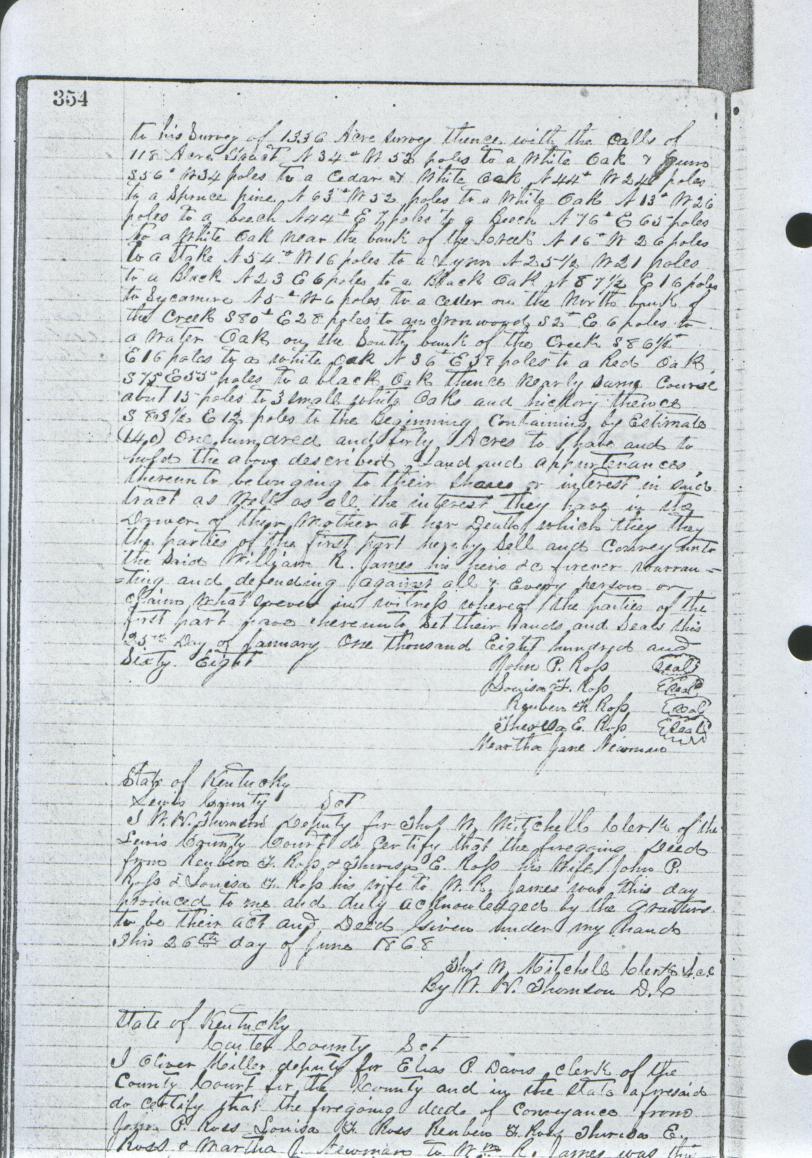 354
to his Survey of 1336 Acre survey thence with the calls of
118 Acre N 34 W 52 poles to a White Oak &
S 56 W 34 poles to a Cedar & White Oak N 44 W 24 poles
to a Spruce pine N 63 W 52 poles to a White Oak N 13 W 26
poles to a beech N 44 E 7 poles to a Beech N 76 E 65 poles
to a White Oak near the bank of the Creek N 16 W 26 poles
to a Stake N 54 W 16 poles to a Lynn N 25½ W 21 poles
to a Black N 23 E 6 poles to a Black Oak N 87½ E 16 poles
to Sycamore N 5 W 6 poles to a Ceder on the North bank of
the Creek S 80 E 28 poles to an Ironwood S 2 E 6 poles to
a Water Oak on the South bank of the Creek S 86½
E 16 poles to a white Oak N 36 E 38 poles to a Red Oak
S 75 E 55 poles to a black Oak thence Nearly Same Course
about 15 poles to 3 small white Oaks and hickory thence
S 83½ E 12 poles to the Beginning Containing by Estimate
(140) One hundred and forty Acres to have and to
hold the above described Land and appurtenances
thereunto belonging to their shares or interest in said
tract as Well as all the interest they have in the
Dower of their Mother at her Death which they They
the parties of the first part hereby Sell and Convey unto
the Said William R. James his heirs &c forever warran=
=ting and defending against all & Every person or
Claims Whatsoever in witness whereof the parties of the
first part have hereunto Set their hands and Seals this
25th Day of January One thousand Eight hundred and
Sixty Eight John P. Ross Seal
Louisa F. Ross Seal
Reuben F. Ross Seal
Theresa E. Ross Seal
Martha Jane Newman
State of Kentucky
Lewis County Sct
I W. W. Thomson Deputy for Thos W. Mitchell Clerk of the
Lewis County Court do Certify that the foregoing Deed
from Reuben F. Ross & Theresa E. Ross his Wife John P.
Ross & Louisa F. Ross his wife to W. R. James was this day
produced to me and duly acknowledged by the Grantors
to be their act and Deed Given under my hand
This 26th day of June 1868
Thos W. Mitchell Clerk
By W. W. Thomson D.C
State of Kentucky
Carter County Sct
I Oliver Miller deputy for Elias P. Davis clerk of the
County Court for the County and in the State aforesaid
do certify that the foregoing deede of conveyance from
John P. Ross Louisa F. Ross Reuben F. Ross Theresa E.
Ross & Martha J. Newman to Wm R. James was this